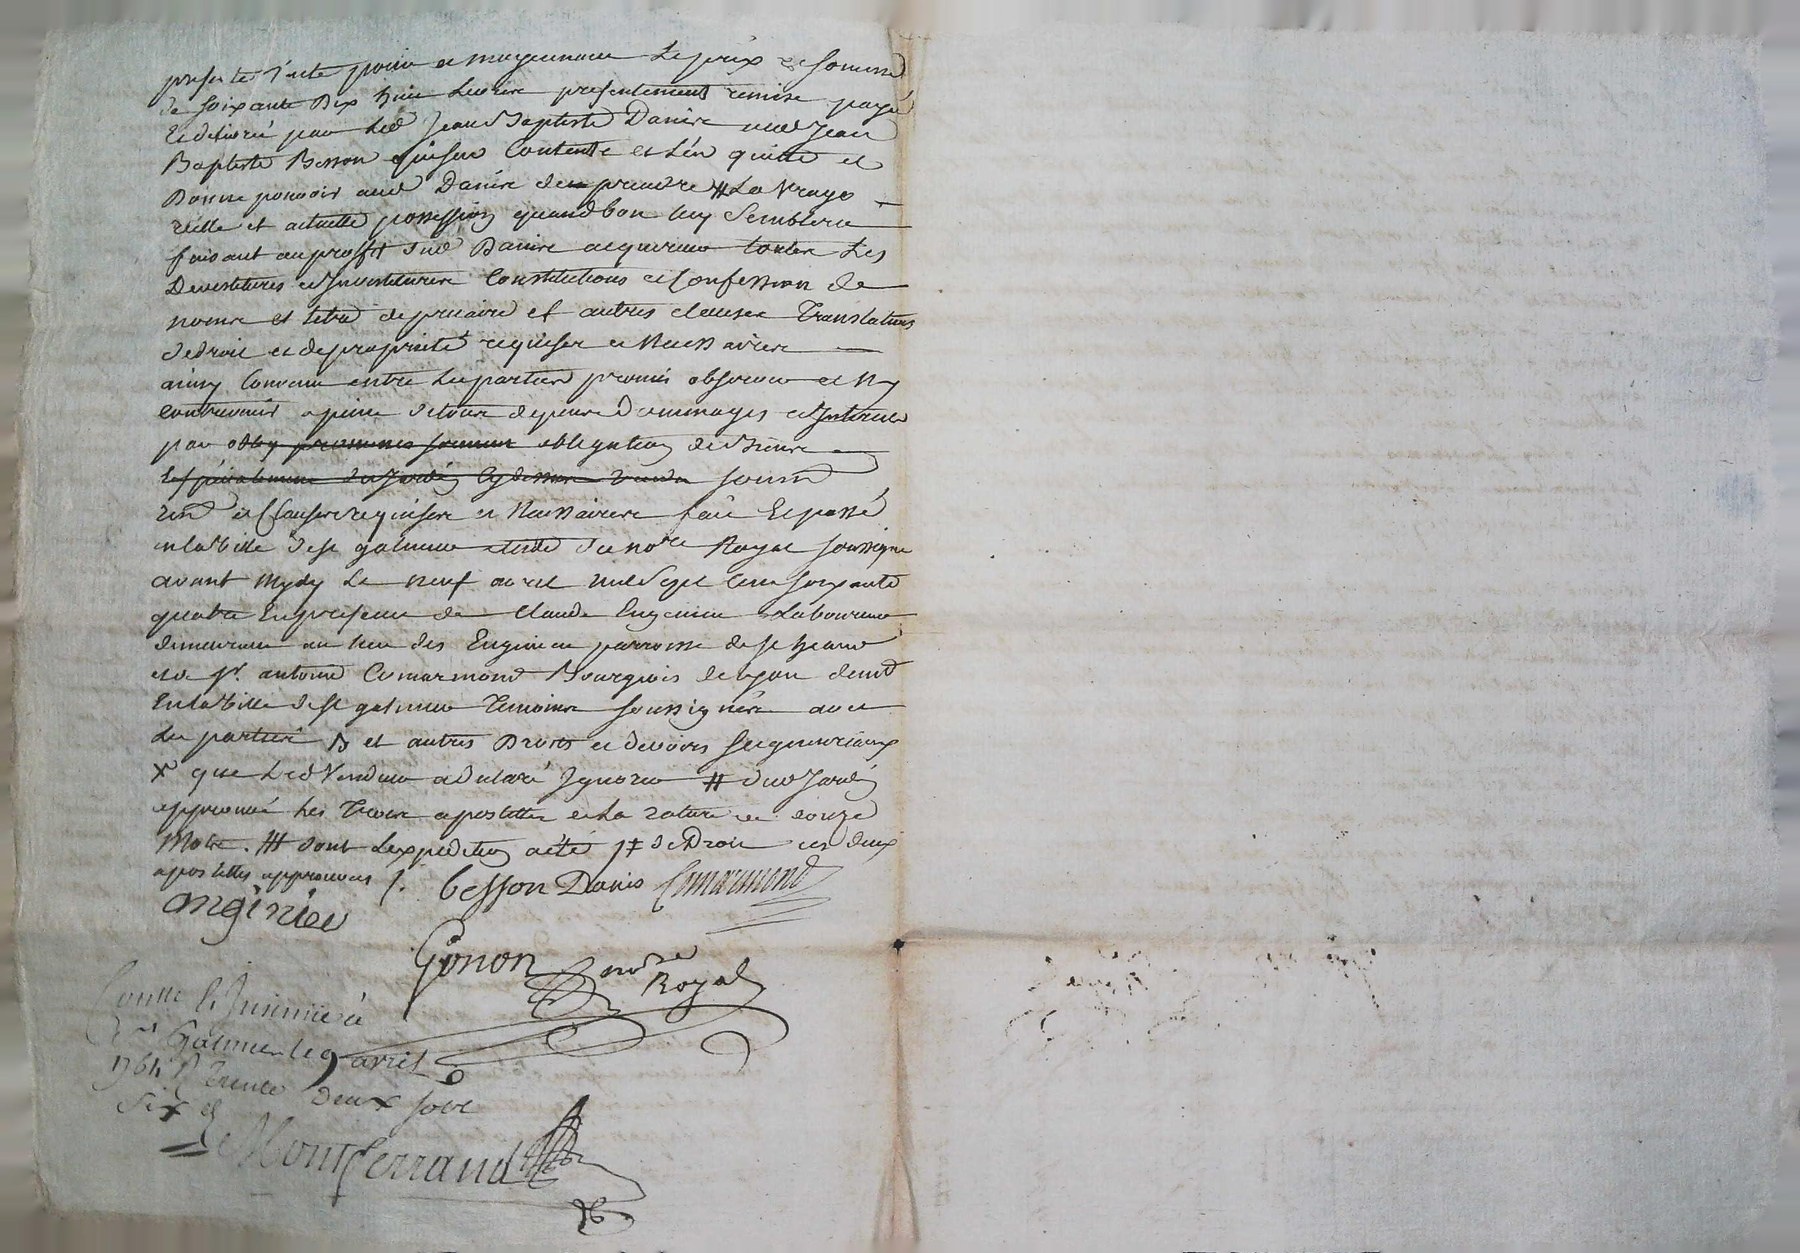 presente vente pour et moyennant le prix et somme
de soixante dix huit livres presentement remise payé
et delivré par led Jean Baptiste Danire aud Jean
Baptiste Besson qui sen contente et l'en quitte et
Donne pouvoir aud Danire de prendre # La vraye
réelle et actuelle possession quand bon luy semblera
faisant au proffit dud Danire acquereur toutes Les
Devestitures et Investitures Constitutions et Confession de
nom et titre de precaire et autres clauses Translatives
de droit et de proprieté requises et Necessaires
ainsy Convenu entre les parties promis observer et N'y
contrevenir a peine de tous depens Dommages et Interets
par obligation de biens
soumn
ren et Clauses requises et Necessaires fait Et passé
en la ville de st galmier etude du nore Royal soussigné
avant mydy Le neuf avril mil sept cent soixante
quatre En presence de Claude Enginieu Laboureur
demeurant au lieu des Enginieu parroisse de st
et de sr. antoine Comarmond Bourgeois de Lyon demt
En la ville de st galmier Temoins soussignés avec
Les parties & et autres Droits et devoirs seigneuriaux
x que led Vendeur a declaré Ignorer # dud Jardin
approuvé Les Trois apostilles et La rature de douze
Mots. ### dont L'expedition a été # de Droit ces deux
apostilles approuvées /. besson Danis Comarmond
anginieu
Gonon nore
Royal
Conllé & Insinué à
St Galmier le 9 avril
1764 R Trente deux sols
six d
De Montferrand